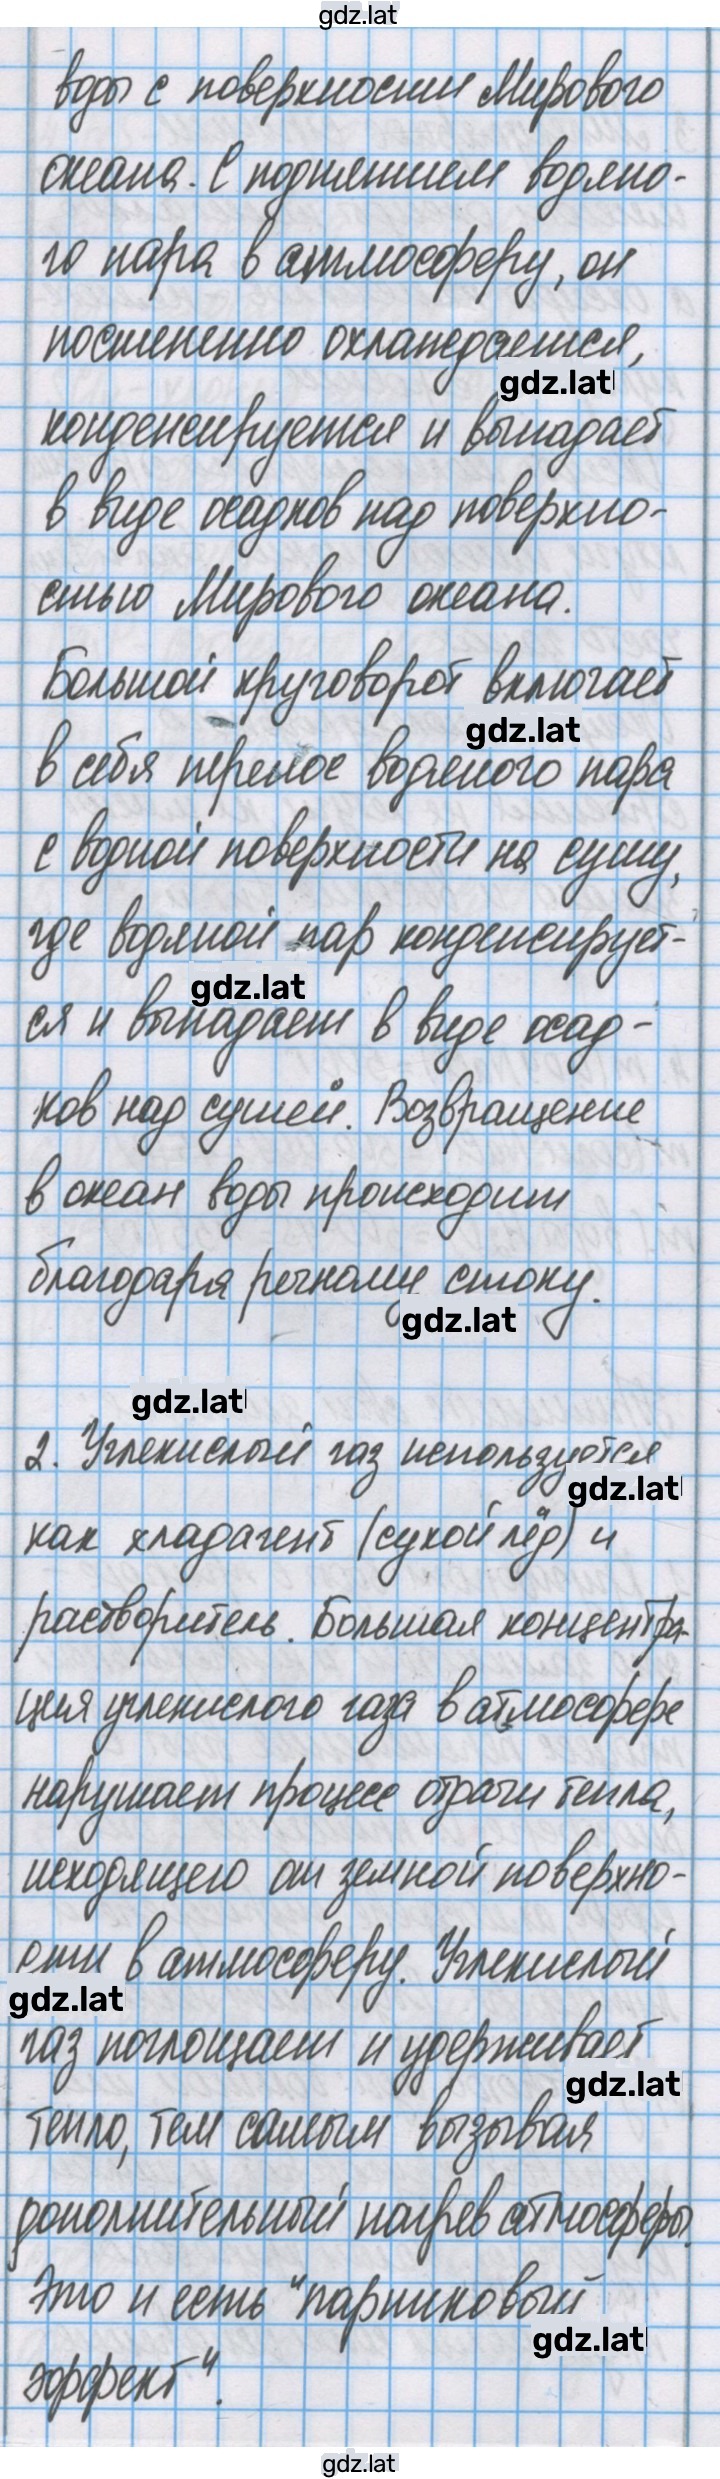 gdz.lat
воды с поверхности Мирового
океана. С поднятием водяно-
го пара в атмосферу, он
постепенно охлаждается,
gdz.lat
конденсируется и выпадает
в виде осадков над поверхно-
стью Мирового океана.
Большой круговорот включает
gdz.lat
в себя перенос водяного пара
с водной поверхности на сушу,
где водяной пар конденсирует-
gdz.lat
ся и выпадает в виде осад-
ков над сушей. Возвращение
в океан воды происходит
благодаря речному стоку.
gdz.lat
gdz.lat
2. Углекислый газ используется
gdz.lat
как хладагент (сухой лёд) и
растворитель. Большая концентра-
ция углекислого газа в атмосфере
нарушает процесс отдачи тепла,
исходящего от земной поверхно-
сти в атмосферу. Углекислый
gdz.lat
газ поглощает и удерживает
gdz.lat
тепло, тем самым вызывая
дополнительный нагрев атмосферы.
Это и есть "парниковый
gdz.lat
эффект".
gdz.lat